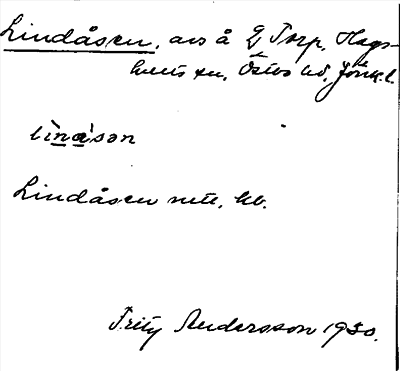 Lindåsen, avs å Torp, Hags-
hults sn, Östbo hd, Jönk. l.
lìnǝ́sǝn
Lindåsen mtl, kb.
Fritz Andersson 1930.